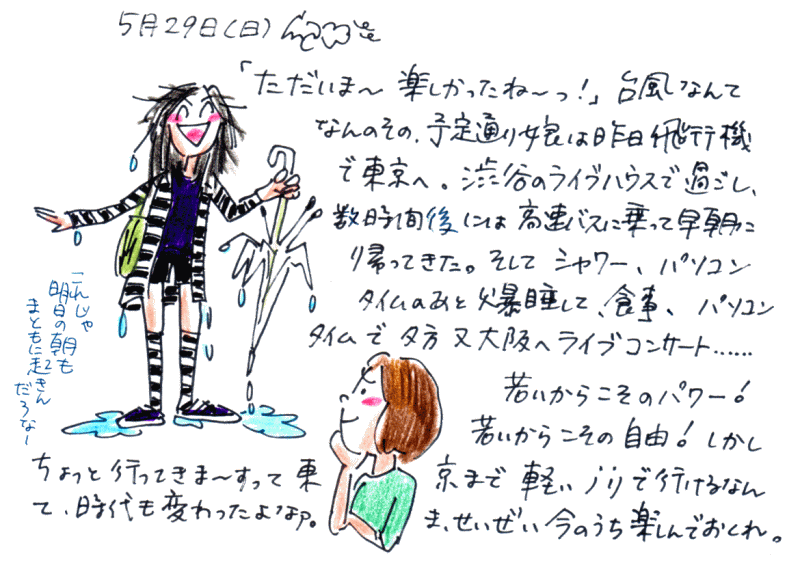 5月29日(日)
「ただいま〜 楽しかったね〜っ!」台風なんて
なんのその、予定通り娘は昨日飛行機
で東京へ。渋谷のライブハウスで過ごし、
数時間後には高速バスに乗って早朝に
帰ってきた。そしてシャワー、パソコン
タイムのあと爆睡して、食事、パソコン
タイムで夕方又大阪へライブコンサート......
若いからこそのパワー!
若いからこその自由!しかし
ちょっと行ってきま〜すって東京まで軽いノリで行けるなん
て、時代も変わったよなァ。ま、せいぜい今のうち楽しんでおくれ。
こんじゃ
明日の朝も
まともに起きん
だろなー